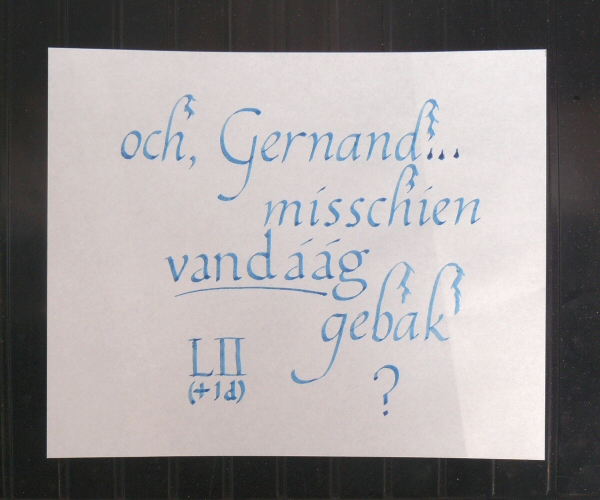 och, Gernand...
misschien
vandáág
gebak
?
LII
(+1d)